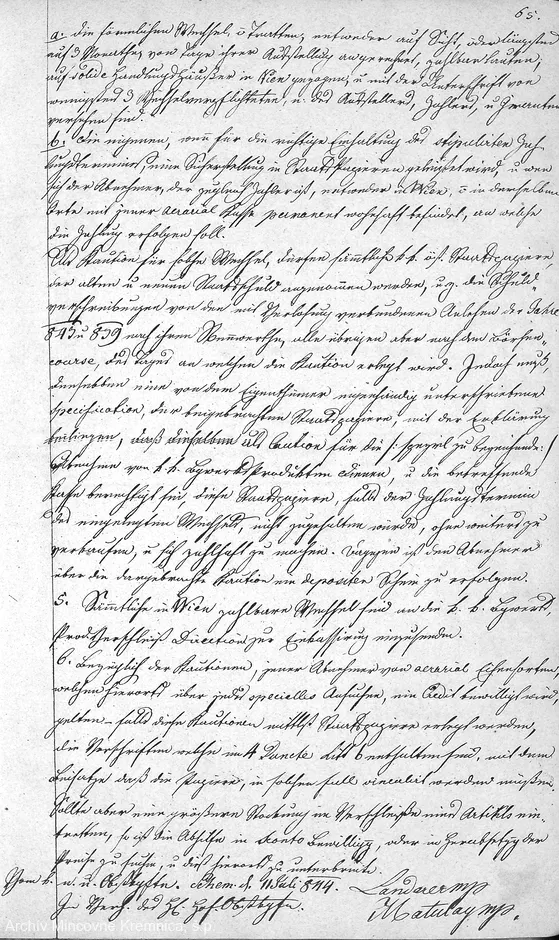 65.
a. die förmlichen Wechsel, u Tratten, entweder auf Sicht, oder längstens
auf 3 Monathe, vom Tage ihrer Ausstellung angerechnet, zahlbar lauten,
auf solide Handlungshäuser in Wien gezogen, u mit der Unterschrift von
wenigstens 3 Wechselverpflichteten, u. des Ausstellers, Zahlers, u Giranten
versehen sind.
b. die eigenen, wenn für die richtige Einhaltung des stipulirten Zah-
lungstermines, eine Sicherstellung in Staatspapieren geleistet wird, u wenn
sich der Abnehmer, der zugleich Zahler ist, entweder in Wien, o in demselben
Orte mit jener aerarial Kasse permanent wohnhaft befindet, an welche
die Zahlung erfolgen soll.
Als Kaution für solche Wechsel, dürfen sämtliche k. k. öst. Staatspapiere
der alten u neuen Staatsschuld angenommen werden, u. z. die Schuld-
verschreibungen von den mit Verlosung verbundenen Anlehen der Jahre
 u 839 nach ihrem Nennwerthe, alle übrigen aber nach dem Börsen-
course, des Tages an welchem die Kaution erlegt wird. Jedoch muß,
denselben eine von dem Eigenthümer eigenhändig unterschriebene
Specification, der beigebrachten Staatspapiere, mit der Erklärung
beiliegen, daß dieselben als Caution für die /: speziel zu bezeichnende :/
Abnahme von k. k. Bgwerks Produkten dienen, u die betreffende
Kasse berechtigt sei, diese Staatspapiere, falls der Zahlungstermin
des eingelegten Wechsels, nicht zugehalten würde, ohne weiters zu
verkaufen, u sich zahlhaft zu machen. Dagegen ist dem Abnehmer
über die dargebrachte Kaution ein depositen Schein zu erfolgen.
5. Sämmtliche in Wien zahlbare Wechsel sind an die k. k. Bgwerks
Prod. Verschleiß Direction zur Einkassirung einzusenden.
6. Bezüglich der Kautionen, jener Abnehmer von aerarial Eisensorten,
welchen hierorts über jedes specielles Ansuchen, ein Credit bewilligt wird,
gelten – falls diese Kautionen mittlst Staatspapiere erlegt werden,
die Vorschriften welche im 4 Puncte Litt b enthalten sind, mit dem
Beisatze daß die Papiere, in solchem Fall vinculirt werden müßen.
Sollte aber eine größere Stockung im Verschleiße eines Artikls ein-
tretten, so ist die Abhilfe in Sconto Bewilligg, oder in Herabsetzg der
Preise zu suchen, u dieß hierorts zu unterbreit.
Vom k. n. u. Obstkgfte. Schem. d. 11 Juli 844.
In Verh. des H. Hof
Landerer mp
Matulay mp.
Archiv Mincovne Kremnica, š.p.